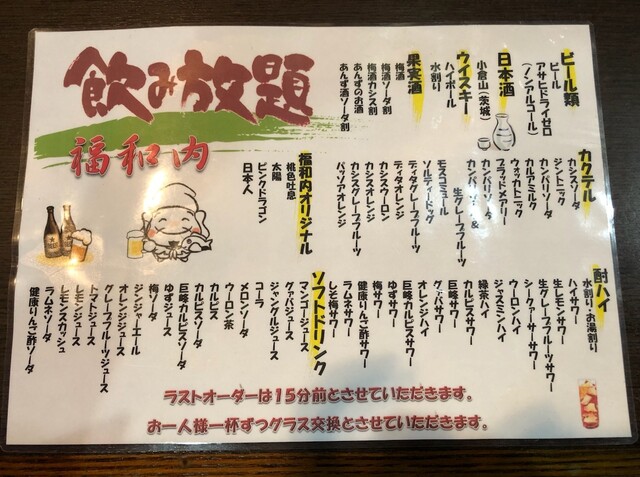 飲み放題
福和内
ビール類
ビール
アサヒドライゼロ
（ノンアルコール）
日本酒
小倉山（茨城）
ウイスキー
ハイボール
水割り
果実酒
梅酒
梅酒ソーダ割
梅酒カシス割
あんずのお酒
あんず酒ソーダ割
カクテル
カシスソーダ
ジントニック
カンパリソーダ
カルアミルク
ウォッカトニック
ブラッドメアリー
カンパリソーダ
生グレープフルーツ
モスコミュール
ソルティドッグ
ディタグレープフルーツ
ディタオレンジ
カシスウーロン
カシスオレンジ
カシスグレープフルーツ
パッソアオレンジ
福和内オリジナル
桃色吐息
太陽
ピンクドラゴン
日本人
酎ハイ
水割り・お湯割り
ハイサワー
生レモンサワー
生グレープフルーツサワー
シークァーサーサワー
ウーロンハイ
ジャスミンハイ
緑茶ハイ
カルピスサワー
巨峰サワー
グァバサワー
オレンジハイ
巨峰カルピスサワー
ゆずサワー
梅サワー
健康りんご酢サワー
ラムネサワー
しそ梅サワー
ソフトドリンク
マンゴージュース
グァバジュース
ジャングルジュース
コーラ
メロンソーダ
ウーロン茶
カルピス
カルピスソーダ
巨峰カルピスソーダ
ゆずジュース
梅ソーダ
ジンジャーエール
オレンジジュース
グレープフルーツジュース
トマトジュース
レモンジュース
レモンスカッシュ
ラムネソーダ
健康りんご酢ソーダ
ラストオーダーは15分前とさせていただきます。
お一人様一杯ずつグラス交換とさせていただきます。